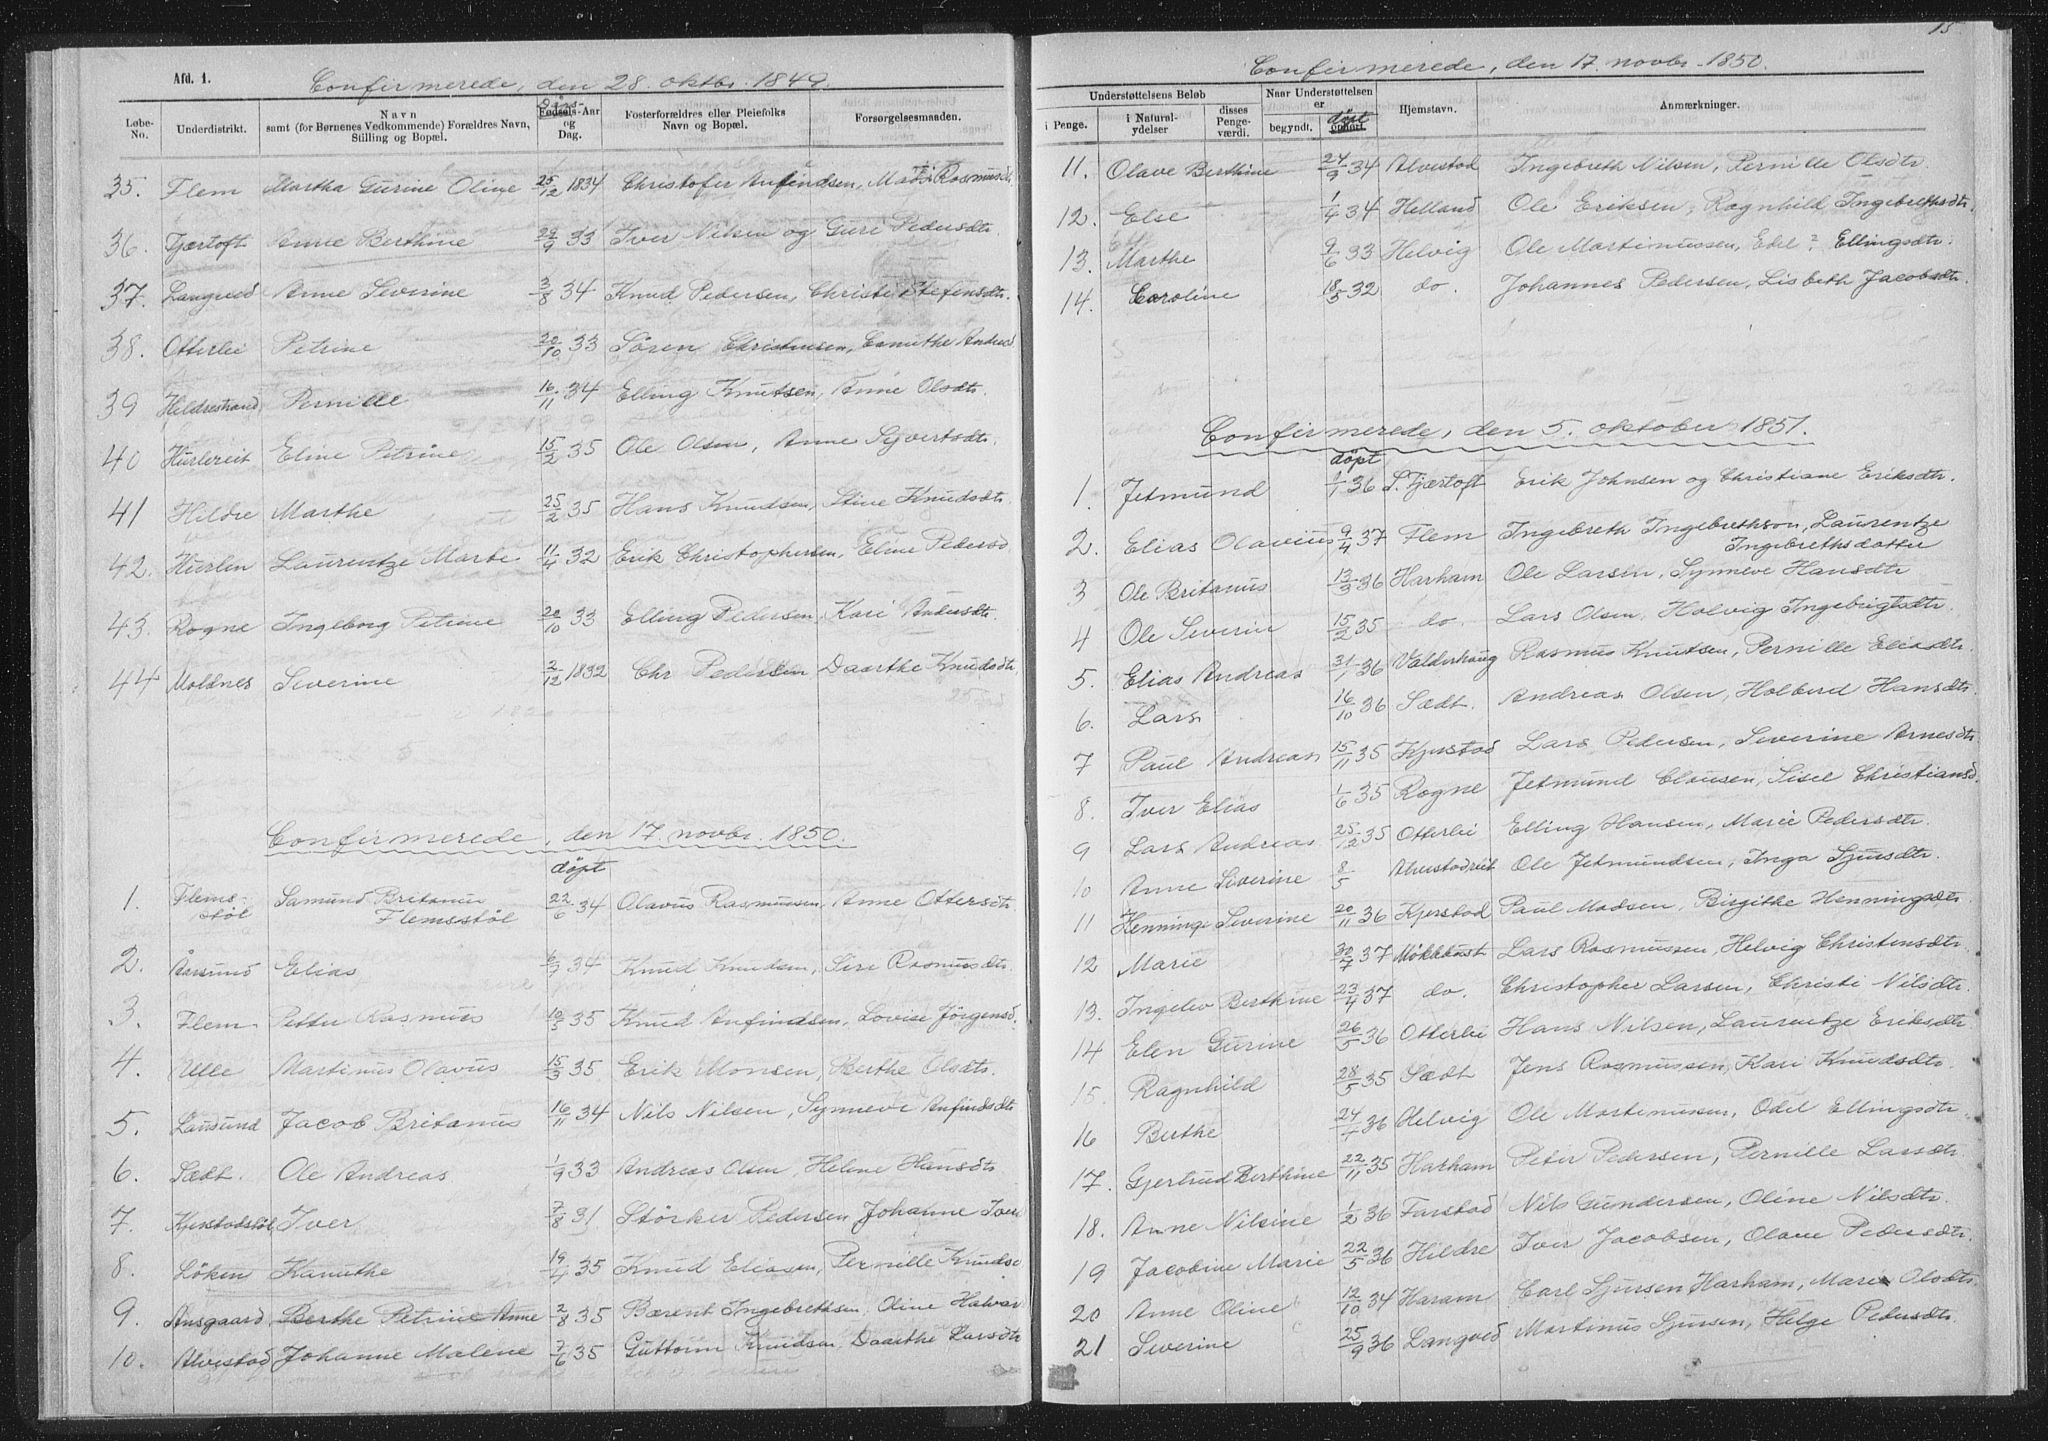 Afd. 1.
Confirmerede, den 28. oktbr. 1849.
Løbe-No. Underdistrikt. Navn samt (for Børnenes Vedkommende) Forældres Navn, Stilling og Bopæl. Fødsels-Aar og Dag. Fosterforældres eller Pleiefolks Navn og Bopæl. Forsørgelsesmaaden.
35. Flem Martha Gurine Oline 25/12 1834 Christofer Anfindsen, Rasmusdtr
36. Fjærtoft Anne Berthine 29/9 33 Iver Nilsen og Guri Pedersdtr.
37. Langved Anne Severine 3/8 34 Knud Pedersen, Christi Stefensdtr.
38. Otterlei Petrine 20/10 33 Sören Christensen, Canuthe Andersd
39 Hildrestrand Pernille 16/11 34 Elling Knutsen, Anne Olsdtr.
40 Hurlereit Eline Petrine 15/2 35 Ole Olsen, Anne Syvertsdtr.
41 Hildre Marthe 25/2 35 Hans Knudsen, Stine Knudsdtr
42. Hurlen Laurentze Marte 11/4 32 Erik Christophersen, Eline Pedersd
43. Rogne Ingeborg Petrine 20/10 33 Elling Pedersen, Kari Andersdtr.
44 Moldnes Severine 2/12 1832 Chr Pedersen Daarthe Knudsdtr
Confirmerede, den 17. novbr. 1850.
döpt
1. Flems-stöl Samund Britanus Flemsstöl 22/6 34 Olavus Rasmussen, Anne Ottersdtr
2. Aarsund Elias 6/7 34 Knud Knudsen, Siri Rasmusdtr.
3. Flem Petter Rasmus 10/5 35 Knud Anfindsen, Lovise Jörgensd.
4. Ulle Martinus Olavus 15/3 35 Erik Monsen, Berthe Olsdtr.
5. Lausund Jacob Britanus 16/11 34 Nils Nilsen, Synneve Anfindsdtr
6. Sædt. Ole Andreas 1/9 33 Andreas Olsen, Helene Hansdtr
7. Kjerstadstöl Iver 7/8 31 Störker Pedersen Johanne Ivers
8. Löken Kanuthe 19/4 35 Knud Eliasen, Pernille Knudsd
9. Ansgaard Berthe Petrine Anne 2/8 35 Bærent Ingebrethsen, Oline Halvar
10. Alvestad Johanne Malene 7/6 35 Guttorm Knudsen, Daarthe Larsdtr
15
Confirmerede, den 17. novbr. 1850.
Understøttelsens Beløb Naar Understøttelsen er Hjemstavn. Anmærkninger.
i Penge. i Natural-ydelser disses Penge-værdi. begyndt. ophørt. döpt
11. Olave Berthine 24/9 34 Alvestad Ingebreth Nilsen, Pernille Olsdtr.
12. Else 1/4 34 Helland Ole Eriksen, Ragnhild Ingebrethsdtr.
13. Marthe 9/6 33 Helvig Ole Martinussen, Edel ? Ellingsdtr.
14. Caroline 18/5 32 do. Johannes Pedersen, Lisbeth Jacobsdtr.
Confirmerede, den 5. oktober 1851.
döpt
1. Jetmund 1/1 36 S. Fjærtoft Erik Johnsen og Christiane Eriksdtr.
2. Elias Olavius 9/4 37 Flem Ingebreth Ingebrethson, Laurentze
Ingebrethsdatter
3 Ole Britanus 13/3 36 Harham Ole Larsen, Synneve Hansdtr
4 Ole Severin 15/2 35 do. Lars Olsen, Holvig Ingebrigtsdtr.
5. Elias Andreas 31/1 36 Valderhaug Rasmus Knutsen, Pernille Eliasdtr.
6. Lars 16/10 36 Sædt. Andreas Olsen, Holberd Hansdtr
7 Paul Andreas 15/11 35 Kjerstad Lars Pedersen, Severine Arnesdtr
8. Iver Elias 1/6 35 Rogne Jetmund Clausen, Sisel Christiansd.
9 Lars Andreas 25/12 35 Otterlei Elling Hansen, Marie Pedersdtr.
10 Anne Severine 8/5 Alvestadreit Ole Jetmundsen, Inga Sjursdtr.
11 Henninge Severine 20/11 36 Kjerstad Paul Madsen, Birgithe Henningsdtr
12 Marie 30/7 37 Mökkhust Lars Rasmussen, Helvig Christensdtr.
13. Ingelev Berthine 23/4 37 do. Christopher Larsen, Christi Nilsdtr.
14 Elen Gurine 26/5 36 Otterlei Hans Nilsen, Laurentze Eriksdtr
15. Ragnhild 28/5 35 Sædt Jens Rasmussen, Kari Knudsdtr.
16 Berthe 24/1 36 Helvig Ole Martinussen, Odel Ellingsdtr.
17. Gjertrud Berthine 22/11 35 Harham Peter Pedersen, Pernille Larsdtr.
18. Anne Nilsine 1/2 36 Farstad Nils Gundersen, Oline Nilsdtr.
19 Jacobine Marie 22/5 36 Hildre Iver Jacobsen, Olave Pedersdtr.
20 Anne Oline 12/10 34 Haram Carl Sjursen Harham, Marie Olsdtr.
21 Severine 25/9 36 Langved Martinus Sjursen, Helge Pedersdtr.